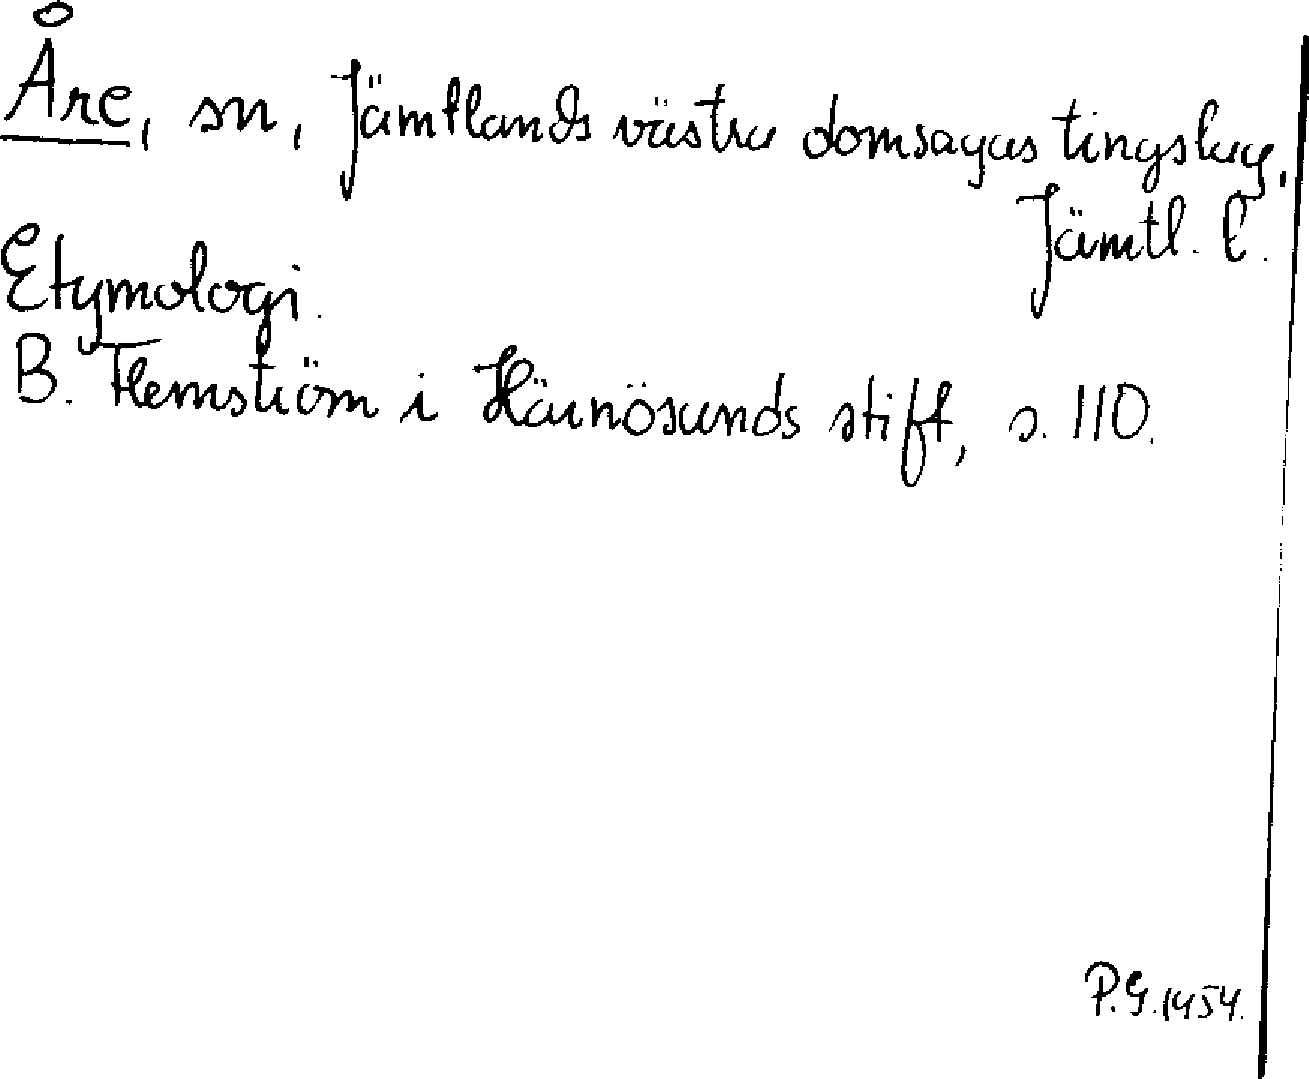 Åre, sn, Jämtlands västra domsagas tingslag,
Jämtl. l.
Etymologi.
B. Flemström i Härnösunds stift, s. 110.
P.G. 1954.